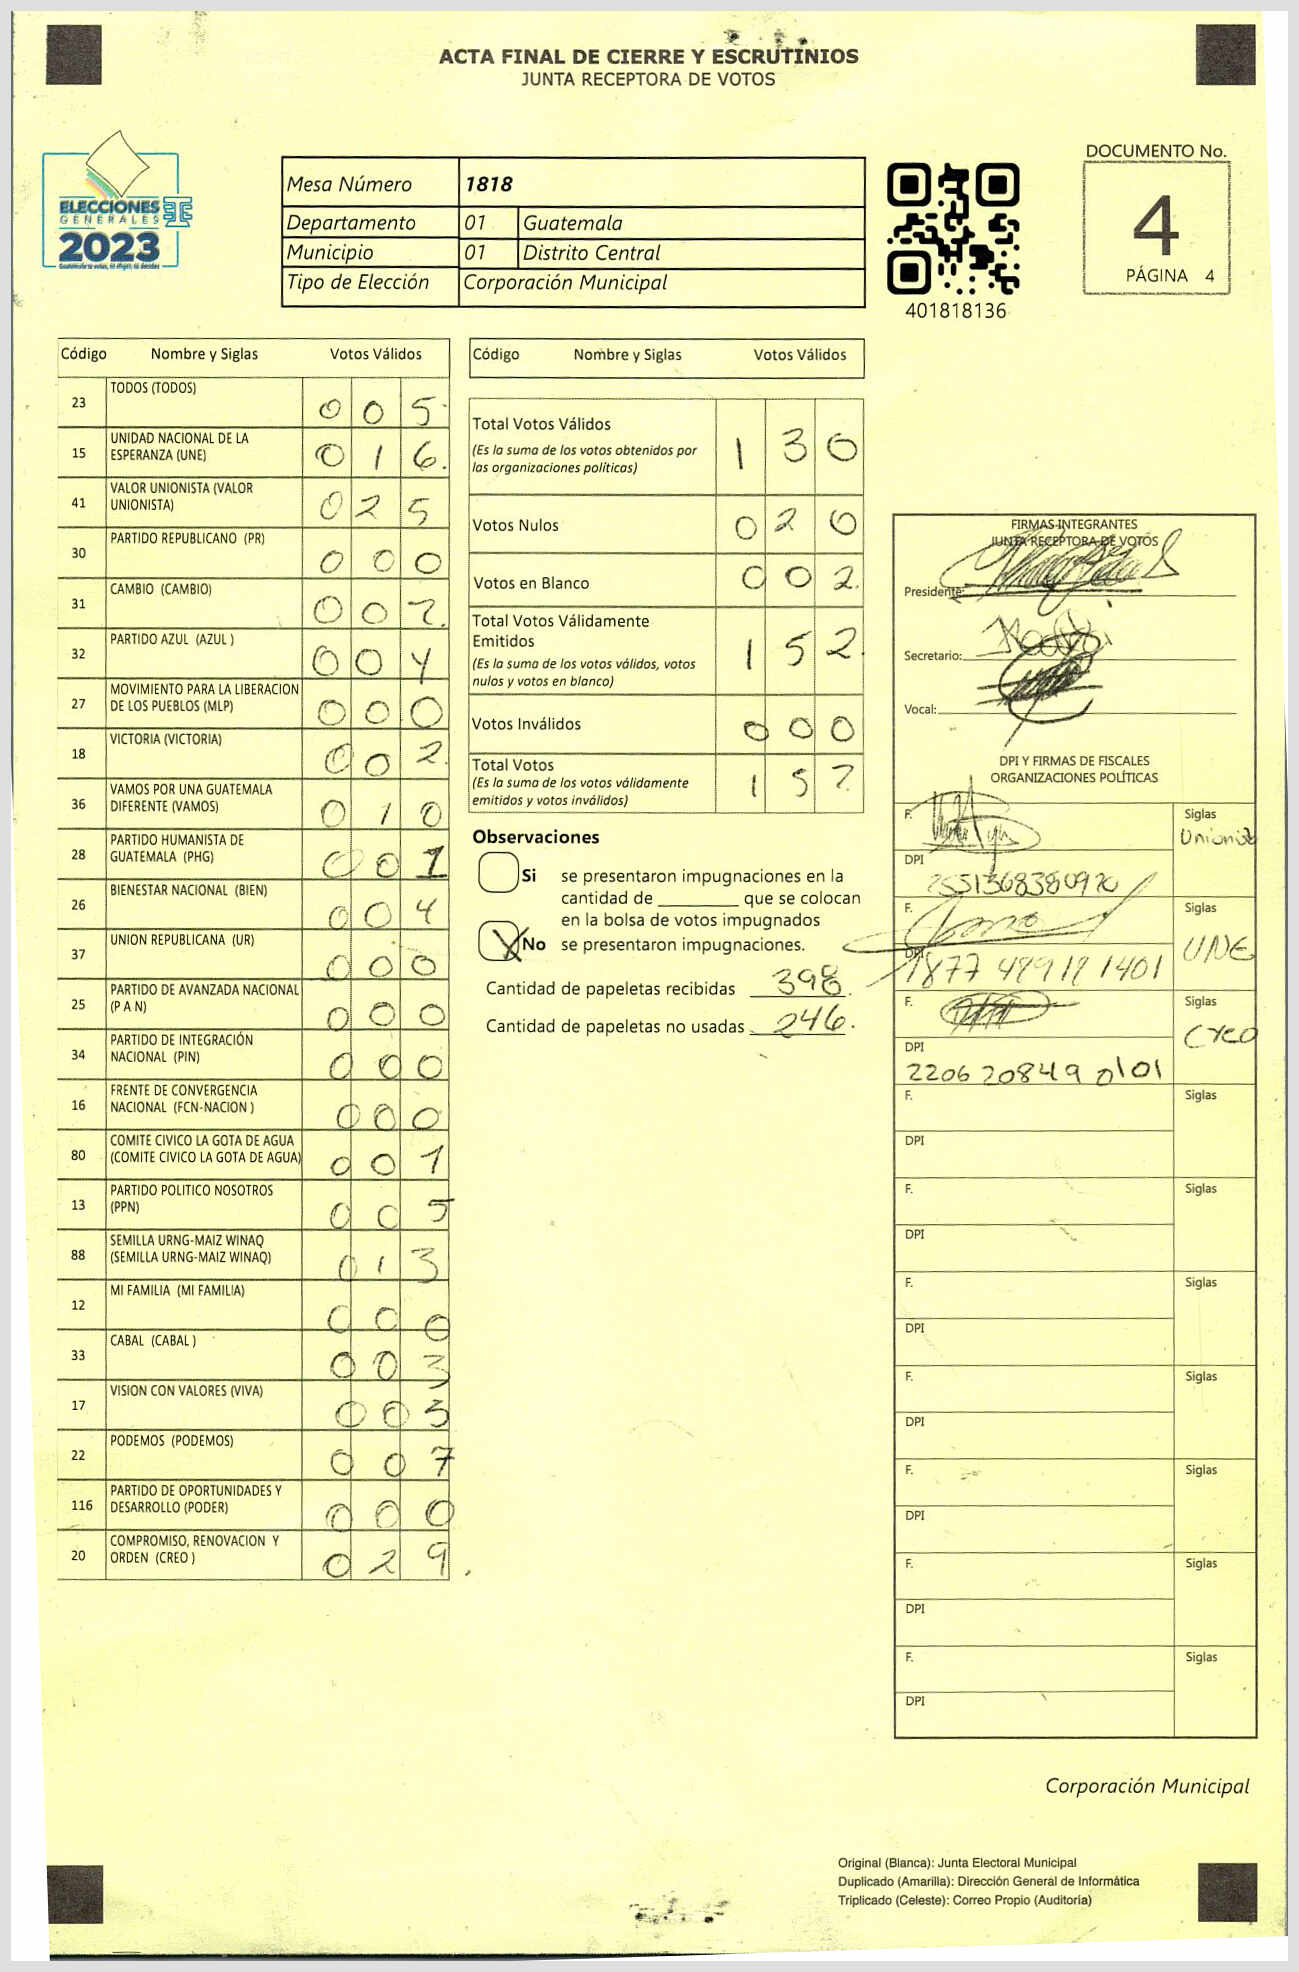 ACTA FINAL DE CIERRE Y ESCRUTINIOS
JUNTA RECEPTORA DE VOTOS
ELECCIONES
GENERALES
2023
Mesa Número 1818
Departamento 01 Guatemala
Municipio 01 Distrito Central
Tipo de Elección Corporación Municipal
401818136
DOCUMENTO No.
4
PÁGINA 4
Código Nombre y Siglas Votos Válidos
23 TODOS (TODOS) 0 0 5
15 UNIDAD NACIONAL DE LA
ESPERANZA (UNE) 0 1 6
41 VALOR UNIONISTA (VALOR
UNIONISTA) 0 2 5
30 PARTIDO REPUBLICANO (PR) 0 0 0
31 CAMBIO (CAMBIO) 0 0 2
32 PARTIDO AZUL (AZUL ) 0 0 4
27 MOVIMIENTO PARA LA LIBERACION
DE LOS PUEBLOS (MLP) 0 0 0
18 VICTORIA (VICTORIA) 0 0 2
36 VAMOS POR UNA GUATEMALA
DIFERENTE (VAMOS) 0 1 0
28 PARTIDO HUMANISTA DE
GUATEMALA (PHG) 0 0 1
26 BIENESTAR NACIONAL (BIEN) 0 0 4
37 UNION REPUBLICANA (UR) 0 0 0
25 PARTIDO DE AVANZADA NACIONAL
(P A N) 0 0 0
34 PARTIDO DE INTEGRACIÓN
NACIONAL (PIN) 0 0 0
16 FRENTE DE CONVERGENCIA
NACIONAL (FCN-NACION ) 0 0 0
80 COMITE CIVICO LA GOTA DE AGUA
(COMITE CIVICO LA GOTA DE AGUA) 0 0 1
13 PARTIDO POLITICO NOSOTROS
(PPN) 0 0 5
88 SEMILLA URNG-MAIZ WINAQ
(SEMILLA URNG-MAIZ WINAQ) 0 1 3
12 MI FAMILIA (MI FAMILIA) 0 0 0
33 CABAL (CABAL ) 0 0 3
17 VISION CON VALORES (VIVA) 0 0 3
22 PODEMOS (PODEMOS) 0 0 7
116 PARTIDO DE OPORTUNIDADES Y
DESARROLLO (PODER) 0 0 0
20 COMPROMISO, RENOVACION Y
ORDEN (CREO ) 0 2 9
Código Nombre y Siglas Votos Válidos
Total Votos Válidos 1 3 0
(Es la suma de los votos obtenidos por
las organizaciones políticas)
Votos Nulos 0 2 0
Votos en Blanco 0 0 2
Total Votos Válidamente
Emitidos 1 5 2
(Es la suma de los votos válidos, votos
nulos y votos en blanco)
Votos Inválidos 0 0 0
Total Votos 1 5 2
(Es la suma de los votos válidamente
emitidos y votos inválidos)
Observaciones
Si se presentaron impugnaciones en la
cantidad de ________ que se colocan
en la bolsa de votos impugnados
X No se presentaron impugnaciones.
Cantidad de papeletas recibidas 398.
Cantidad de papeletas no usadas 246.
FIRMAS INTEGRANTES
JUNTA RECEPTORA DE VOTOS
Presidente:
Secretario:
Vocal:
DPI Y FIRMAS DE FISCALES
ORGANIZACIONES POLÍTICAS
F. Siglas
Unionista
DPI
2551368380920
F. Siglas
UNE
DPI
F. Siglas
Creo
DPI
2206 20849 0101
F. Siglas
DPI
F. Siglas
DPI
F. Siglas
DPI
F. Siglas
DPI
F. Siglas
DPI
F. Siglas
DPI
F. Siglas
DPI
Corporación Municipal
Original (Blanca): Junta Electoral Municipal
Duplicado (Amarilla): Dirección General de Informática
Triplicado (Celeste): Correo Propio (Auditoría)